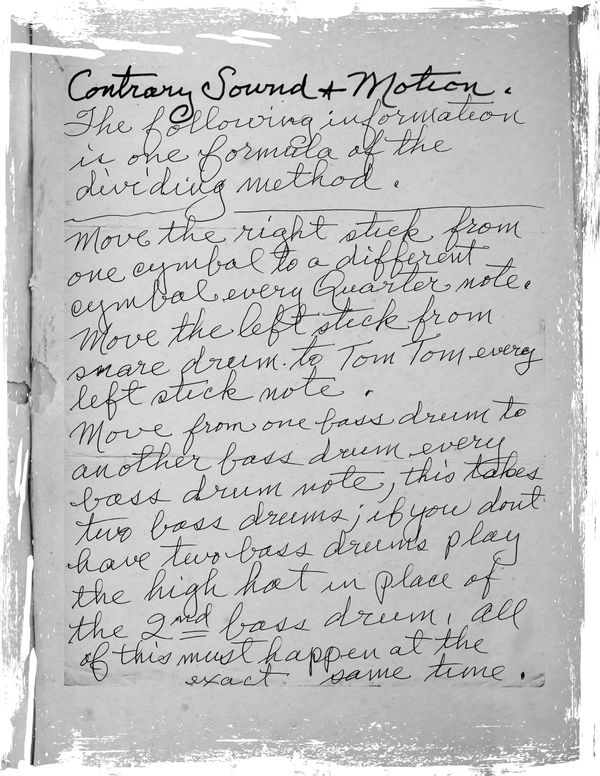 Contrary Sound & Motion.
The following information
is one formula of the
dividing method.
Move the right stick from
one cymbal to a different
cymbal every Quarter note.
Move the left stick from
snare drum to Tom Tom every
left stick note.
Move from one bass drum to
another bass drum every
bass drum note, this takes
two bass drums; if you dont
have two bass drums play
the high hat in place of
the 2nd bass drum. All
of this must happen at the
exact same time.